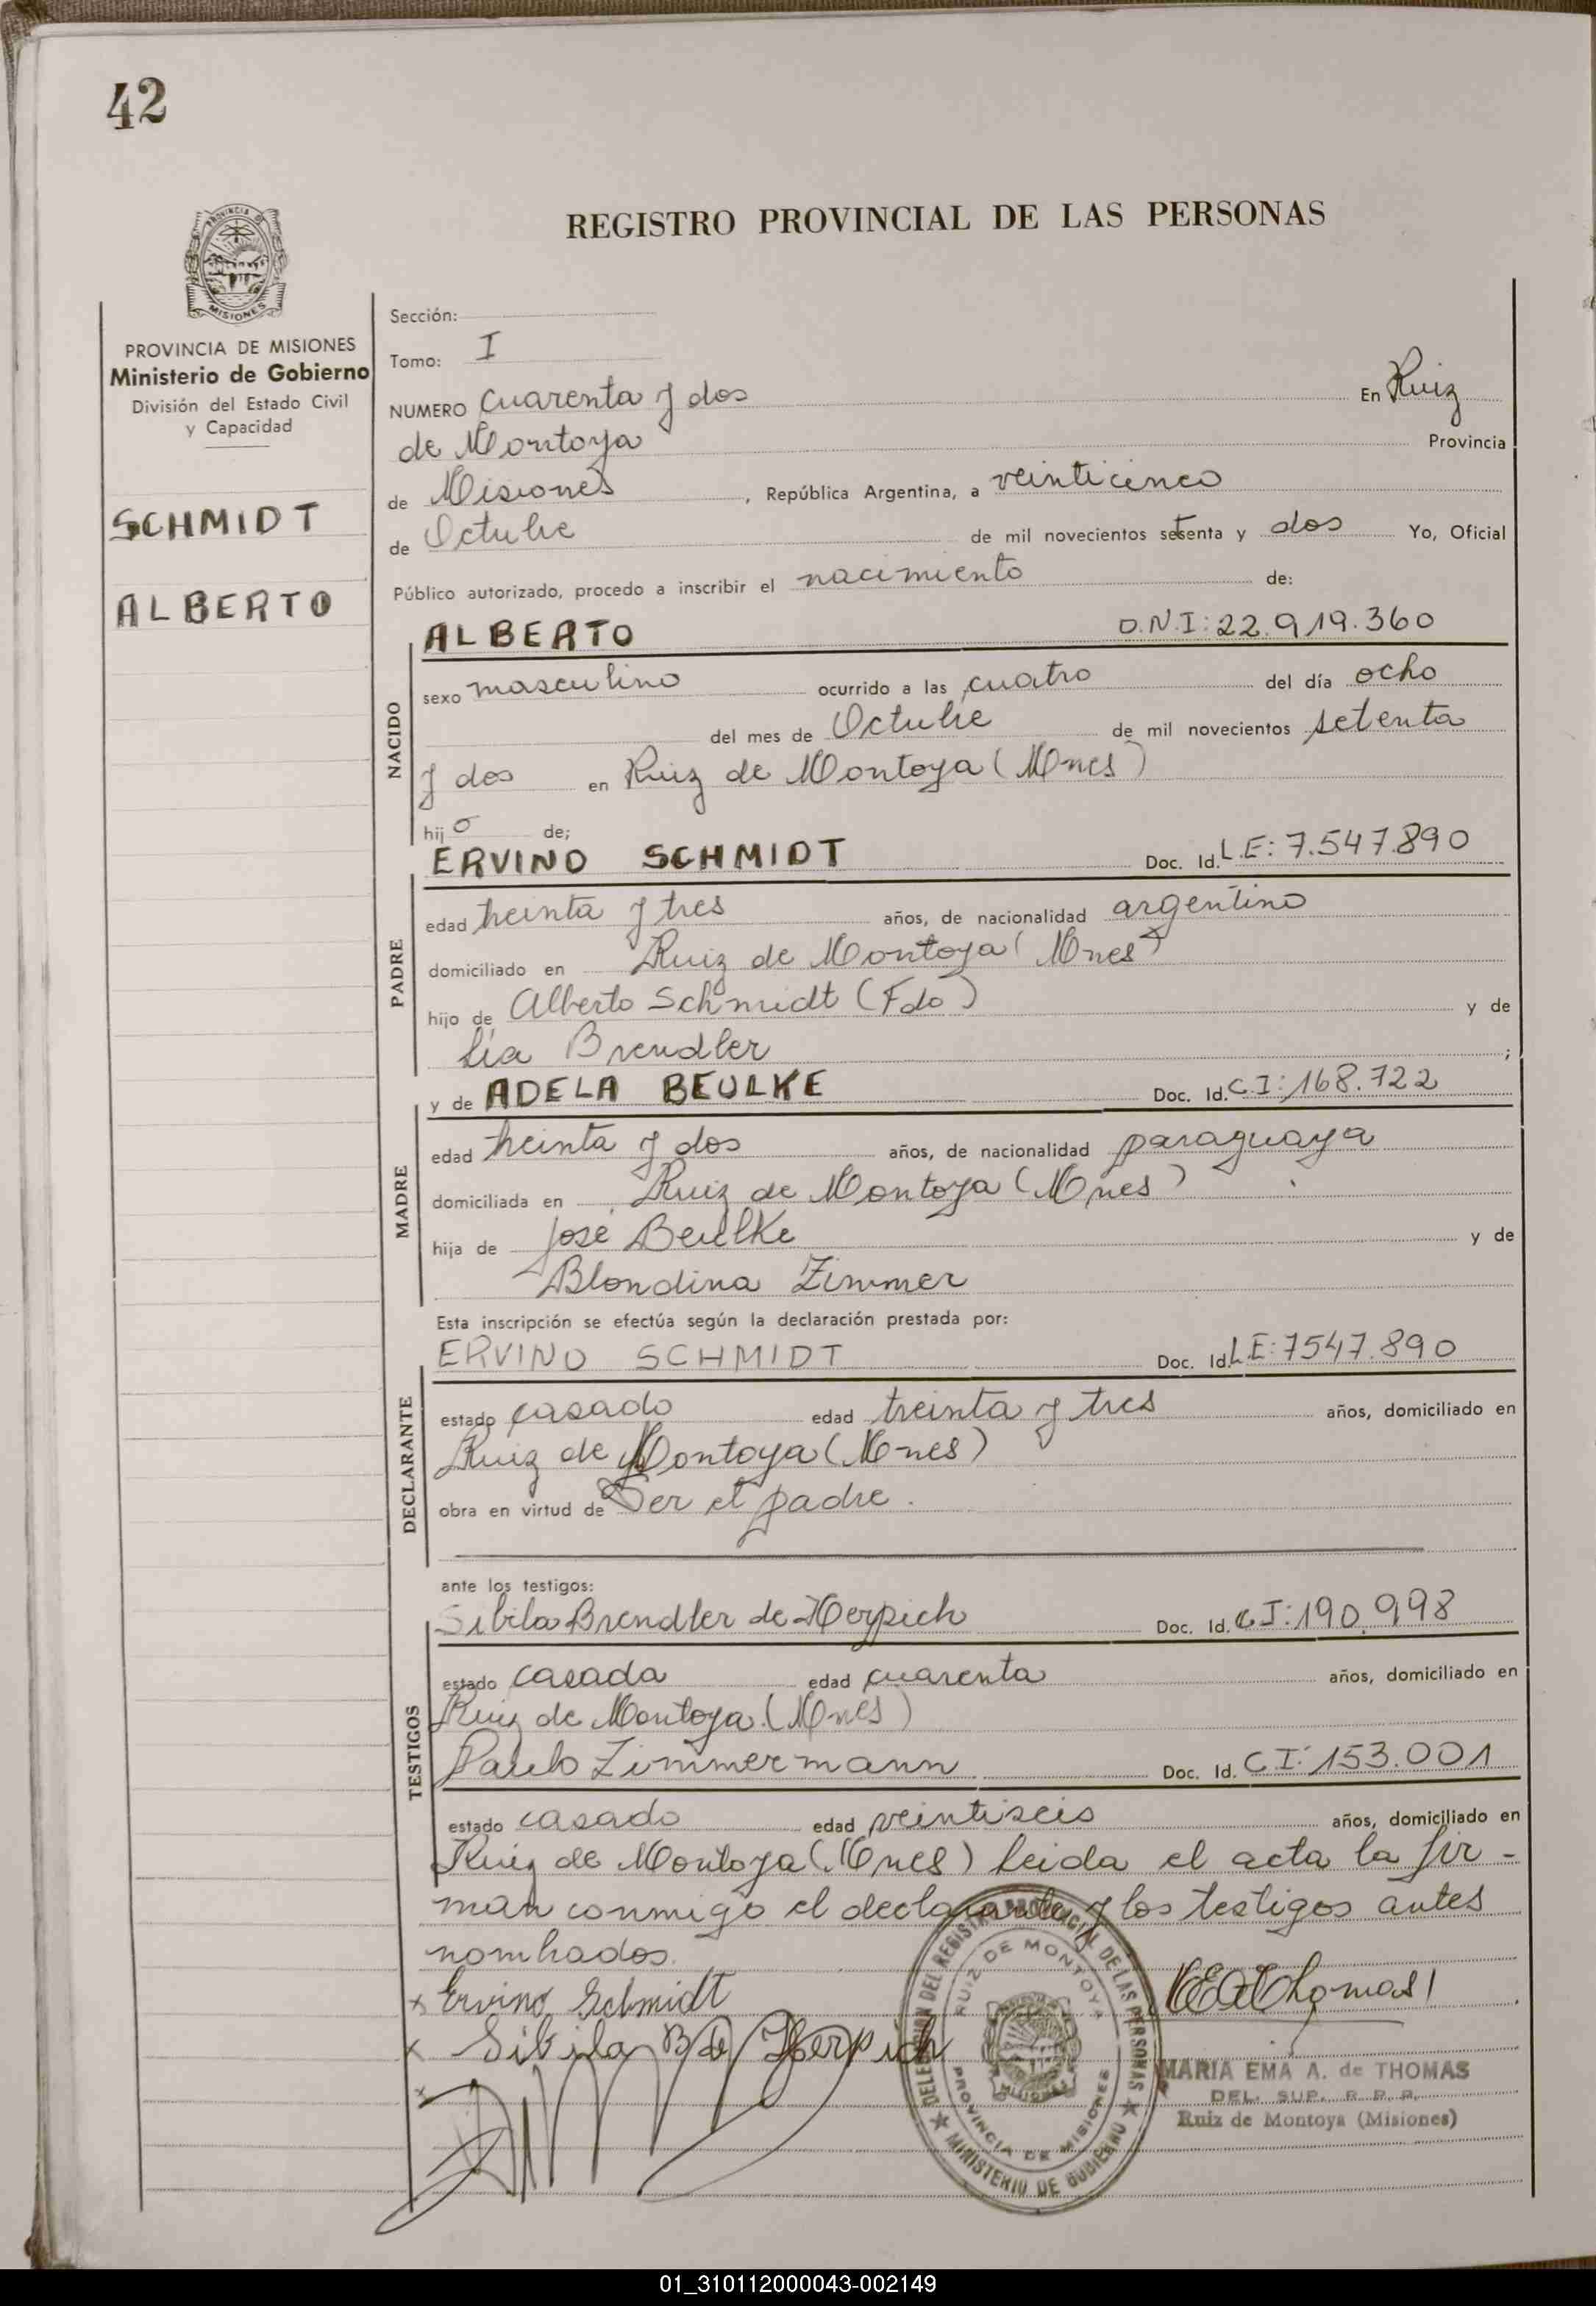 42
REGISTRO PROVINCIAL DE LAS PERSONAS
PROVINCIA DE
MISIONES
PROVINCIA DE MISIONES
Ministerio de Gobierno
División del Estado Civil
y Capacidad
SCHMIDT
ALBERTO
Sección:
Tomo: I
NUMERO Cuarenta y dos En Ruiz
de Montoya Provincia
de Misiones, República Argentina, a veinticinco
de Octubre de mil novecientos setenta y dos Yo, Oficial
Público autorizado, procedo a inscribir el nacimiento de:
NACIDO
ALBERTO D.N.I: 22.919.360
sexo masculino ocurrido a las cuatro del día ocho
del mes de Octubre de mil novecientos setenta
y dos en Ruiz de Montoya (Mnes)
hijo de;
PADRE
ERVINO SCHMIDT Doc. Id. L.E: 7.547.890
edad treinta y tres años, de nacionalidad argentino
domiciliado en Ruiz de Montoya (Mnes)
hijo de Alberto Schmidt (Fdo) y de
Lia Brendler ;
MADRE
y de ADELA BEULKE Doc. Id. C.I: 168.722
edad treinta y dos años, de nacionalidad paraguaya
domiciliada en Ruiz de Montoya (Mnes)
hija de José Beulke y de
Blondina Zimmer
Esta inscripción se efectúa según la declaración prestada por:
DECLARANTE
ERVINO SCHMIDT Doc. Id. L.E: 7547.890
estado casado edad treinta y tres años, domiciliado en
Ruiz de Montoya (Mnes)
obra en virtud de Ser el padre.
ante los testigos:
TESTIGOS
Sibila Brendler de Herpich Doc. Id. C.I: 190.998
estado casada edad cuarenta años, domiciliado en
Ruiz de Montoya (Mnes)
Paulo Zimmermann Doc. Id. C.I: 153.001
estado casado edad veintiseis años, domiciliado en
Ruiz de Montoya (Mnes) leida el acta la fir-
man conmigo el declarante y los testigos antes
nombrados.
x Ervino Schmidt
x Sibila B de Herpich
x
MEAThomas
DELEGACION DEL REGISTRO PROVINCIAL DE LAS PERSONAS
RUIZ DE MONTOYA
PROVINCIA DE MISIONES
★ MINISTERIO DE GOBIERNO ★
MARIA EMA A. de THOMAS
DEL. SUP. R. P. P.
Ruiz de Montoya (Misiones)
01_310112000043-002149